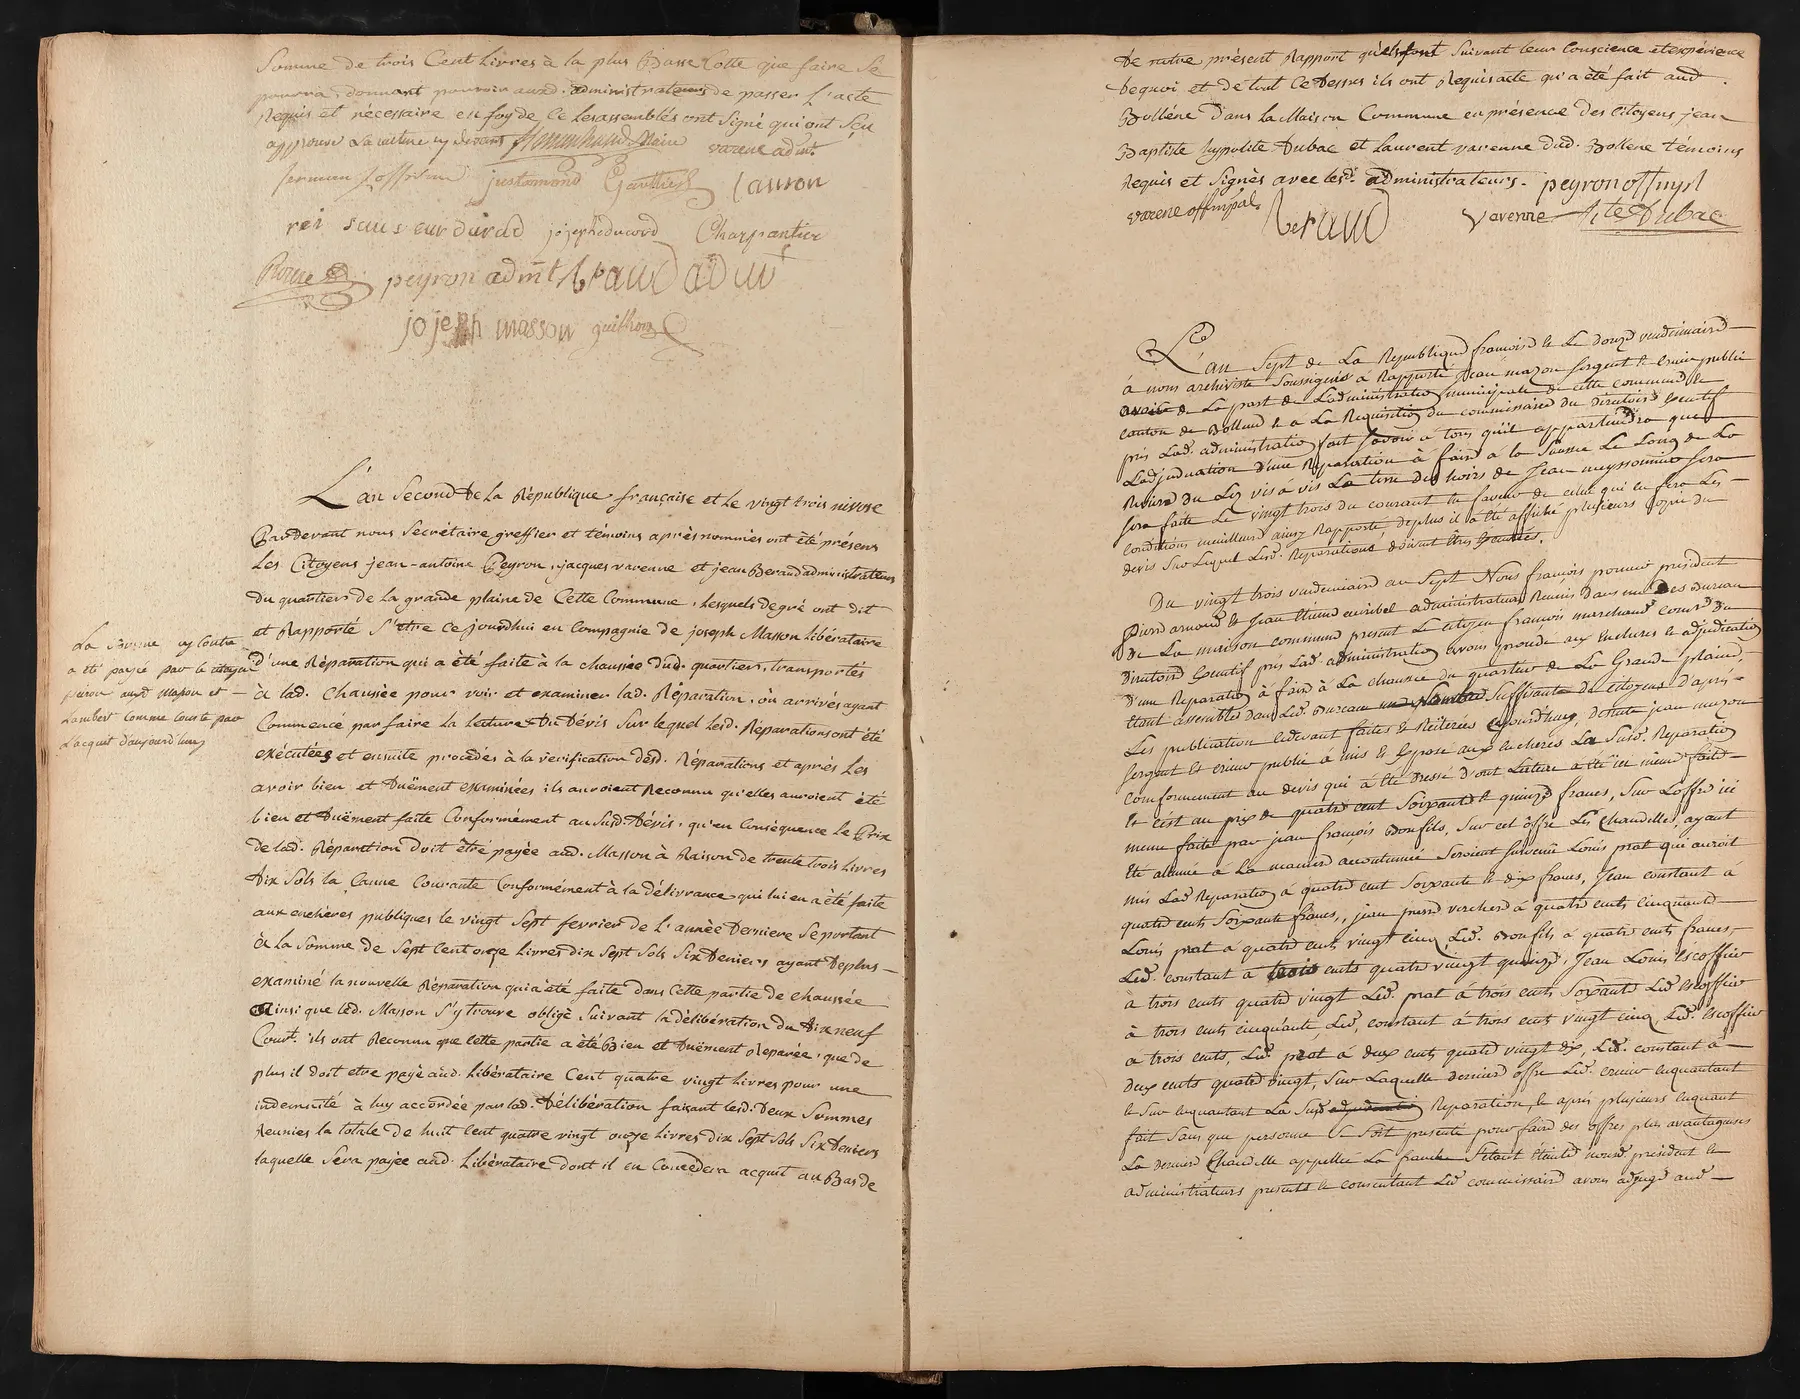 Somme de trois Cent Livres à la plus Basse Cotte que faire se
pourra, donnant pouvoir auxd. administrateurs de passer l'acte
Requis et nécessaire en foy de Ce les assemblés ont signé qui ont sçu
approuvé La rature cy devant Maire varene admt.
justamond Gaultier Lauron
rei saus eur durad joseph ducord Charpantier
peyron admt beraud admt
joseph masson guilhon
L'an Second De la République française et le vingt trois nivose
Pardevant nous Secrétaire greffier et témoins après nommés ont été présens
Les Citoyens jean-antoine Peyron, jacques varenne et jean Beraud administrateurs
Du quartier de La grande plaine de Cette Commune, Lesquels de gré ont dit
et Rapporté s'être ce jourdhui en Compagnie de joseph Masson Libérataire
D'une Réparation qui a été faite à la chaussée dud. quartier, transportés
à lad. Chaussée pour voir et examiner lad. Réparation, où arrivés ayant
Commencé par faire la lecture Du Dévis sur lequel lesd. Réparations ont été
exécutées et ensuite procédés à la vérification desd. Réparations et après Les
avoir bien et Duëment examinées ils auroient Reconnu qu'elles auroient été
bien et Duëment faite Conformément au Susd. Dévis, qu'en Conséquence Le Prix
de lad. Réparation Doit être payée aud. Masson à Raison de trente trois Livres
Dix Sols la Canne Courante Conformément à la délivrance qui lui en a été faite
aux enchères publiques le vingt Sept fevrier de L'année Derniere Se portant
à La Somme de Sept Cent onze Livres dix Sept Sols Six Deniers ayant Deplus
examiné la nouvelle Réparation qui a été faite dans Cette partie de chaussée
Ainsi que led. Masson S'y trouve obligé Suivant la délibération du Dix neuf
Court. ils ont Reconnu que Cette partie a été Bien et Duëment Réparée, que de
plus il doit etre payé aud. Libérataire Cent quatre vingt Livres pour une
indemnité à luy accordée par lad. Délibération faisant lesd. Deux Sommes
Reunies la totale De huit Cent quatre vingt onze Livres Dix Sept Sols Six Deniers
laquelle Sera payée aud. Libérataire dont il en Concedera acquit au Bas de
La Somme cy Contre
a été payée par le citoyen
peiron auxd Mason et
Lambert comme conste par
L'acquit d'aujourd'huy
De notre présent Rapport qu'ils font Suivant leur Conscience et expérience
De quoi et de tout Ce Dessus ils ont Requis acte qu'a été fait aud.
Bollène Dans La Maison Commune en présence des Citoyens jean
Baptiste hypolite Dubac et Laurent varenne dud. Bollene témoins
Requis et Signés avec lesd. administrateurs. peyron offmpl
varene offmpal. beraud Varenne hte Dubac
L'an Sept de La Republique francoise & Le Douze vendemiaire
à nous archiviste Soussigné à Rapporté Jean mazon Sergent & crieur public
avoir de La part de L'administration municipale de cette commune &
canton de Bollene & à La Requisition du commissaire du Directoire Executif
près Lad. administration fait Savoir à tous qu'il appartiendra que
L'adjudication d'une Reparation à faire à la Jausse Le Long de La
Riviere du Lez vis à vis La terre des hoirs de Jean meyssonnier sera
Sera faite Le vingt trois du courant En faveur de celui qui en fera Les
conditions meilleures ainsy Rapporté, deplus il a été affiché plusieurs copie du
devis Sur Lequel Lesd. Reparations doivent Etres Executées.
Du vingt trois vendemiaire an Sept Nous françois president
pierre arnoud & Jean administrateurs Reunis dans un Des Bureau
de La maison commune present Le citoyen françois marchand Comre du
Directoire Executif près Lad. administration avons procedé aux Encheres & adjudication
D'une Reparation à faire à La chaussée du quartier de La Grande plaine,
Etant assemblés dans Led. Bureau un Nombre Suffisante de citoyens D'après
Les publication cidevant faites & Reiterées aujourd'huy, Desuite jean mazon
Sergent & crieur public à mis & Exposé aux encheres La Susd. Reparation
conformement au devis qui à été Dressé d'ont Lecture a été ici meme faite
& c'est au prix de quatre cent Soixante & quinze francs, Sur L'offre ici
meme faite par jean françois Bonfils, Sur cet offre Les Chandelles ayant
été alumée à La maniere accoutumée Seroient Survenu Louis prat qui auroit
mis Lad. Reparation à quatre cent Soixante & dix francs, Jean constant à
quatre cents Soixante francs, jean pierre vercher à quatre cents cinquante
Louis prat à quatre cents vingt cinq, Led. Bonfils à quatre cents francs,
Led. constant à trois cents quatre vingt quinze, Jean Louis Escoffier
à trois cents quatre vingt Led. prat à trois cents Soixante Led. Escoffier
à trois cents cinquante, Led. constant à trois cents vingt cinq, Led. Escoffier
a trois cents, Led. prat à deux cents quatre vingt dix, Led. constant à
Deux cents quatre vingt, Sur Laquelle derniere offre Led. crieur enquantant
& Sur enquantant La Susd. adjudication Reparation, & après plusieurs enquant
fait Sans que personne Se Soit presenté pour faire des offres plus avantageuses
La derniere Chandelle appellée La franche S'etant éteinte nous president &
administrateurs presents & consentant Led. commissaire avons adjugé aud